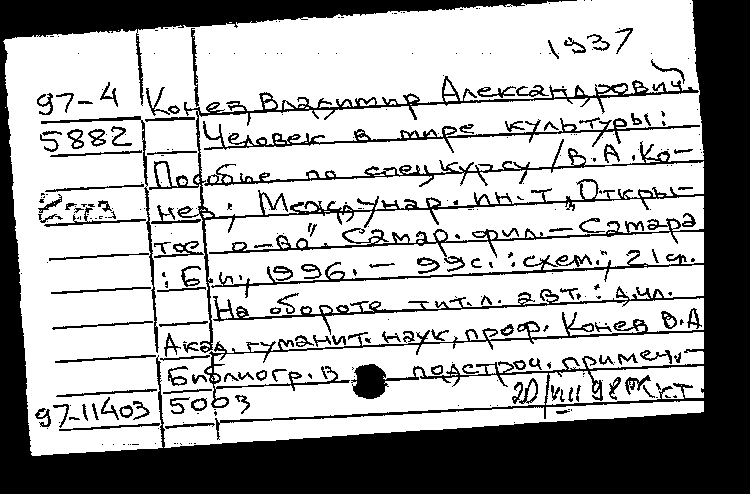 1937
97-4 Конев, Владимир Александрович.
5882 Человек в мире культуры:
Пособие по спецкурсу / В.А. Ко-
нев; Междунар. ин-т „Откры-
тое о-во". Самар. фил. — Самара
: Б.и., 1996. — 99 с. : схем.; 21 см.
На обороте тит. л. авт.: д.чл.
Акад. гуманит. наук, проф. Конев В.А
Библиогр. в подстроч. примеч. -
97-11403 5003 20/VII 98 кт.